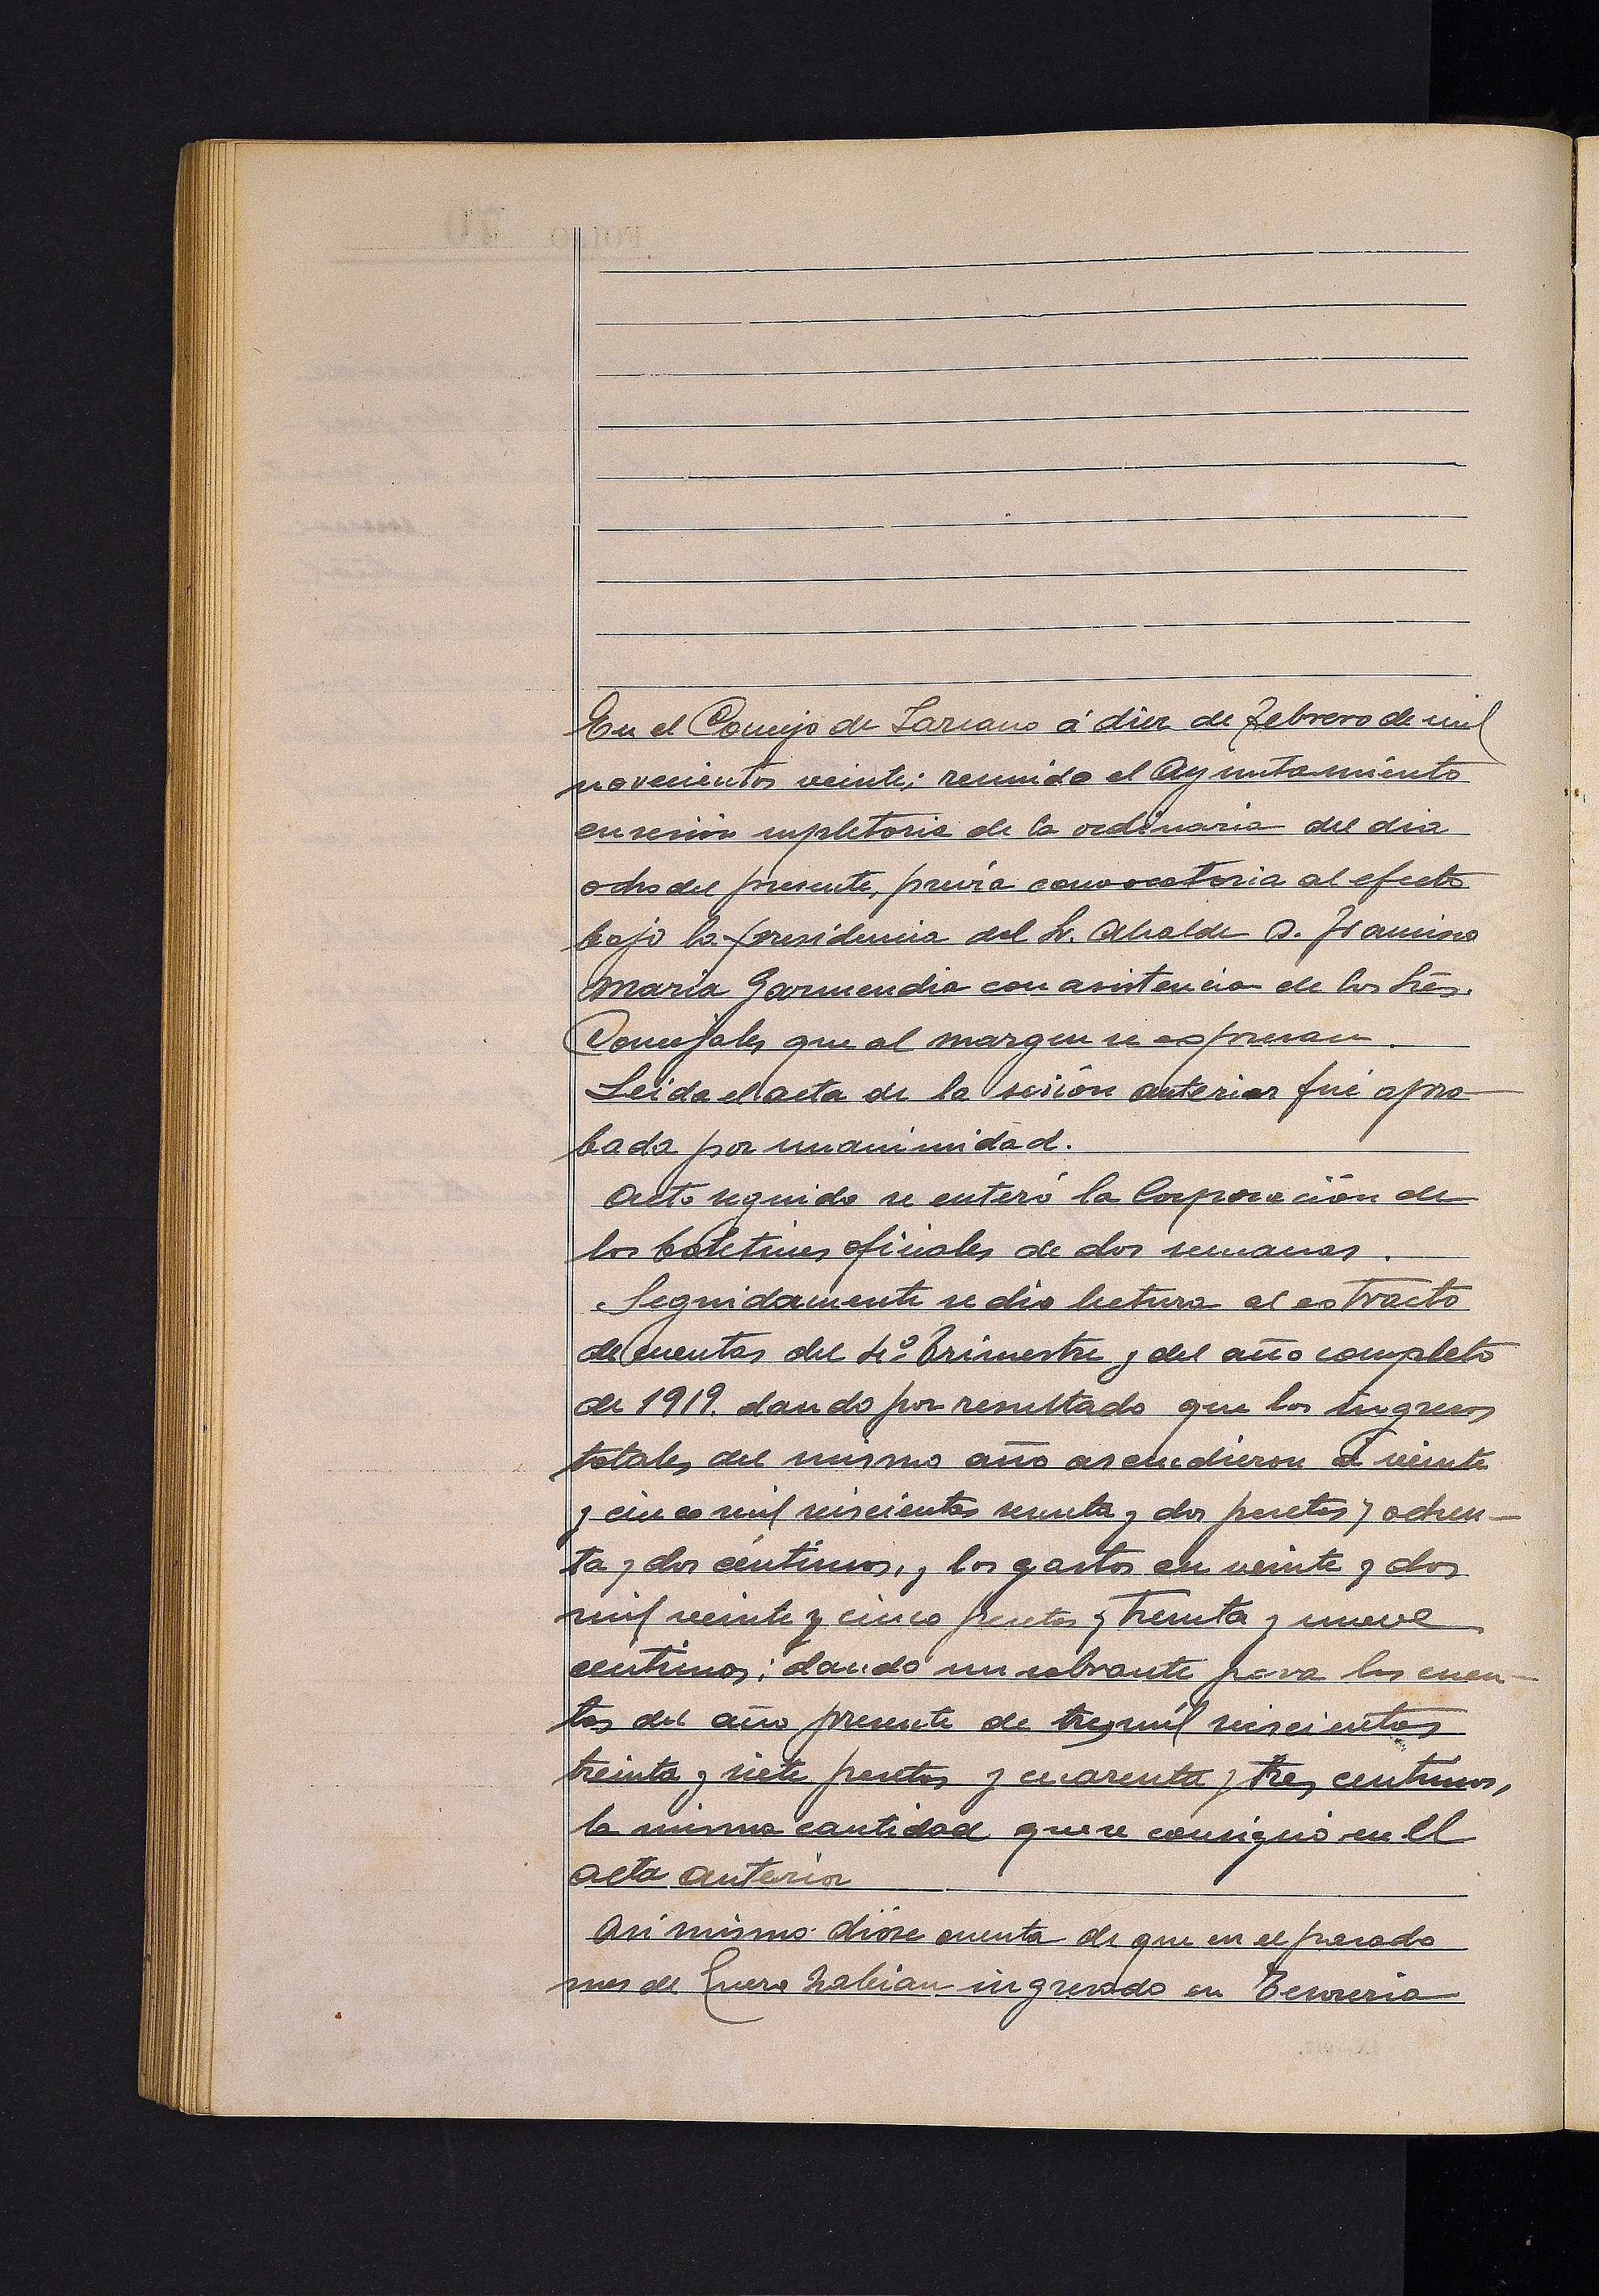 En el Concejo de Larraul á diez de Febrero de mil
novecientos veinte; reunido el Ayuntamiento
en sesión supletoria de la ordinaria del dia
ocho del presente, previa convocatoria al efecto
bajo la presidencia del Sr. Alcalde D. Francisco
Maria Garmendia con asistencia de los Sres.
Concejales que al margen se espresan.
Leida el acta de la sesión anterior fué apro-
bada por unanimidad.
Acto seguido se enteró la Corporación de
los boletines oficiales de dos semanas.
Seguidamente se dio lectura al estracto
de cuentas del 4º Trimestre y del año completo
de 1919. dando por resultado que los ingresos
totales del mismo año ascendieron á veinte
y cinco mil seiscientas sesenta y dos pesetas y ochen-
ta y dos céntimos, y los gastos en veinte y dos
mil veinte y cinco pesetas y treinta y nueve
centimos; dando un sobrante para las cuen-
tas del año presente de tres mil seiscientas
treinta y siete pesetas y cuarenta y tres centimos,
la misma cantidad que se consignó en El
acta anterior
Asi mismo dióse cuenta de que en el pasado
mes de Enero habian ingresado en Tesoreria